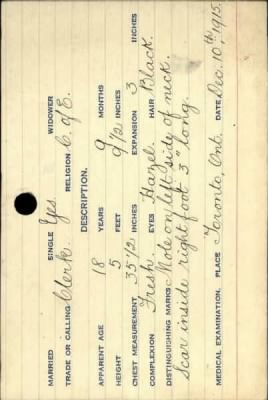 MARRIED SINGLE Yes WIDOWER
TRADE OR CALLING Clerk. RELIGION C. of E.
DESCRIPTION.
APPARENT AGE 18 YEARS 9 MONTHS
HEIGHT 5 FEET 9 1/2 INCHES
CHEST MEASUREMENT 35 1/2 INCHES EXPANSION 3 INCHES
COMPLEXION Fresh EYES Hazel. HAIR Black.
DISTINGUISHING MARKS Mole on left side of neck.
Scar inside right foot 3" long.
MEDICAL EXAMINATION. PLACE Toronto, Ont. DATE Dec. 10th, 1915.